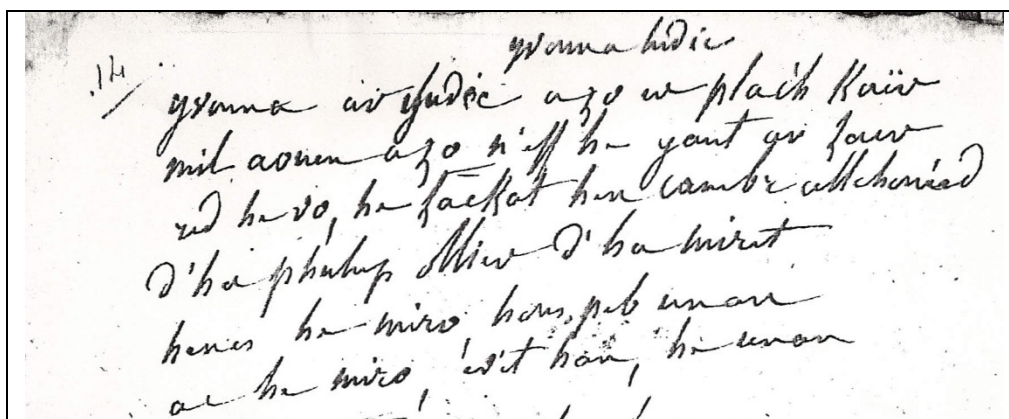 yvonna hudic
14/
yvonna ar hudec a zo ur plach Kaër
mil aouen a zo n'eff he gant ar Laer
red he vo, he Lackat hen cambr allchoueäd
d'ha philip ollier d'ha miret
henes he miro, hous peb unan
ac he miro, évit han, he unan